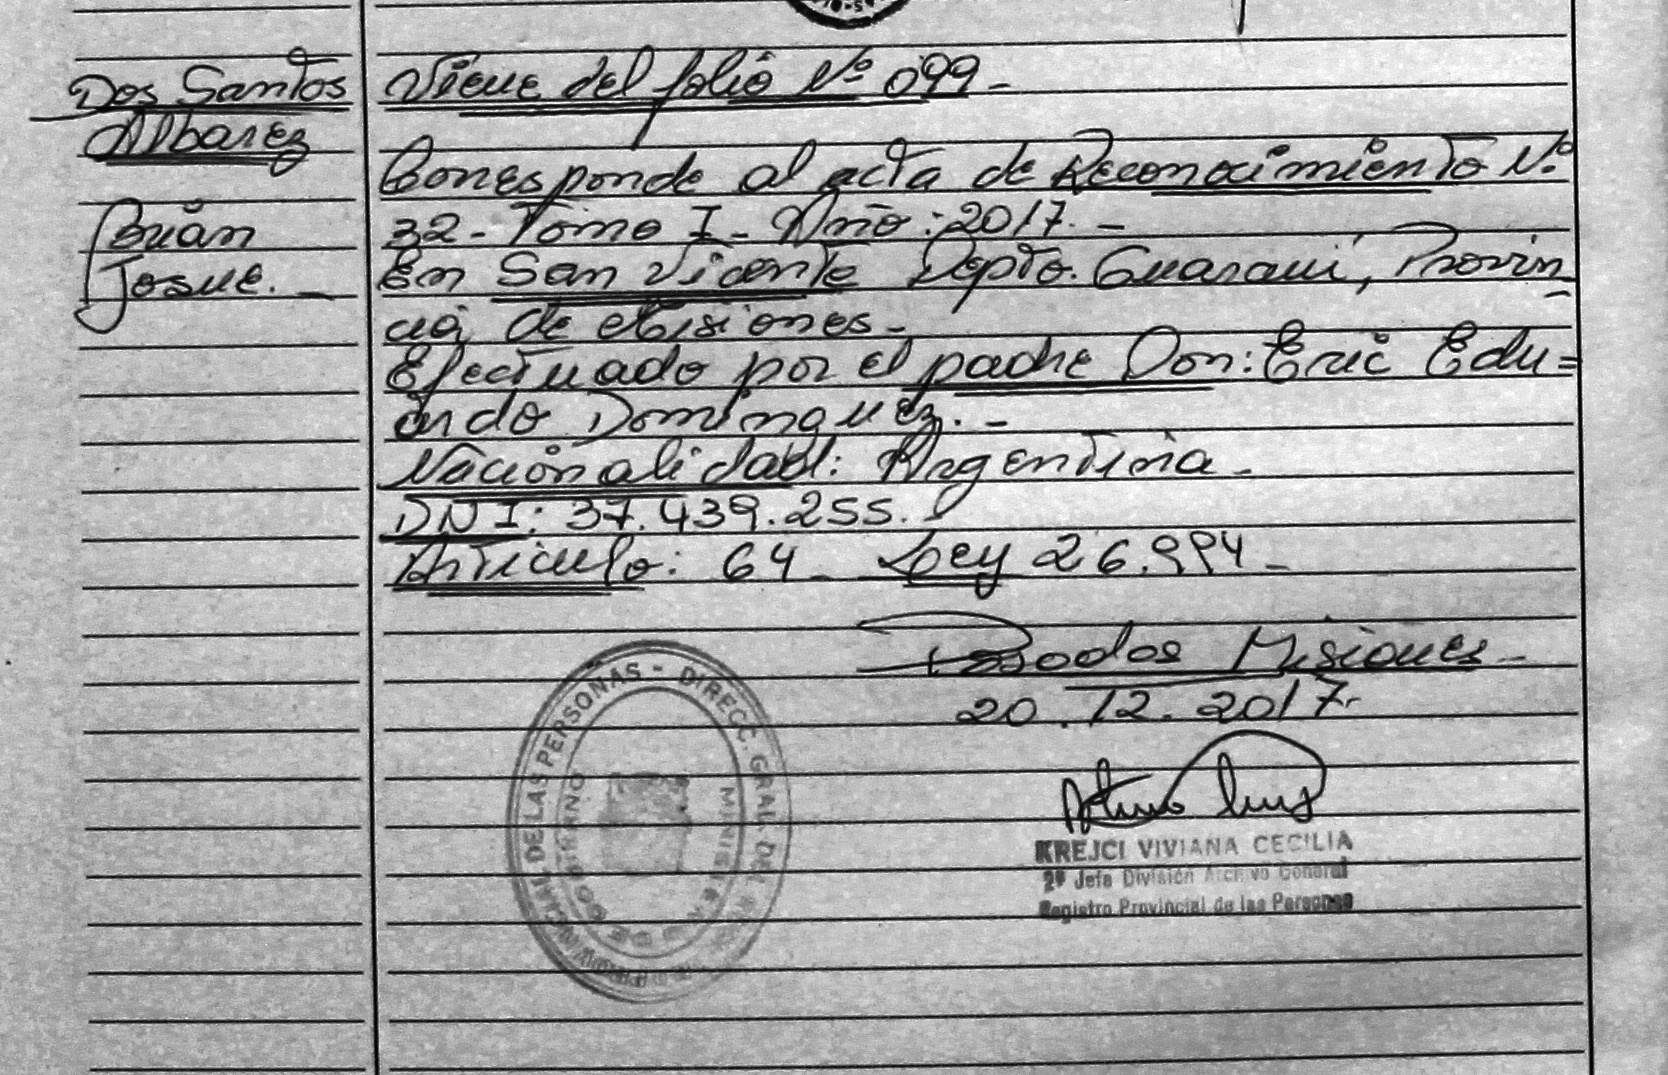 Dos Santos
Albarez
Brian
Josue. _
Viene del folio Nº 099 -
Corresponde al acta de Reconocimiento Nº
32 - Tomo I - Año: 2017. -
En San Vicente Depto. Guarani, Provin
cia de Misiones -
Efectuado por el padre Don: Eric Edu=
ardo Dominguez. -
Nacionalidad: Argentina -
DNI: 37.439.255.
Articulo: 64 - Ley 26.994 -
Posadas Misiones -
20.12.2017.
KREJCI VIVIANA CECILIA
2º Jefa División Archivo General
Registro Provincial de las Personas
PROVINCIAL DE LAS PERSONAS - DIRECC. GRAL. DEL
GOBIERNO